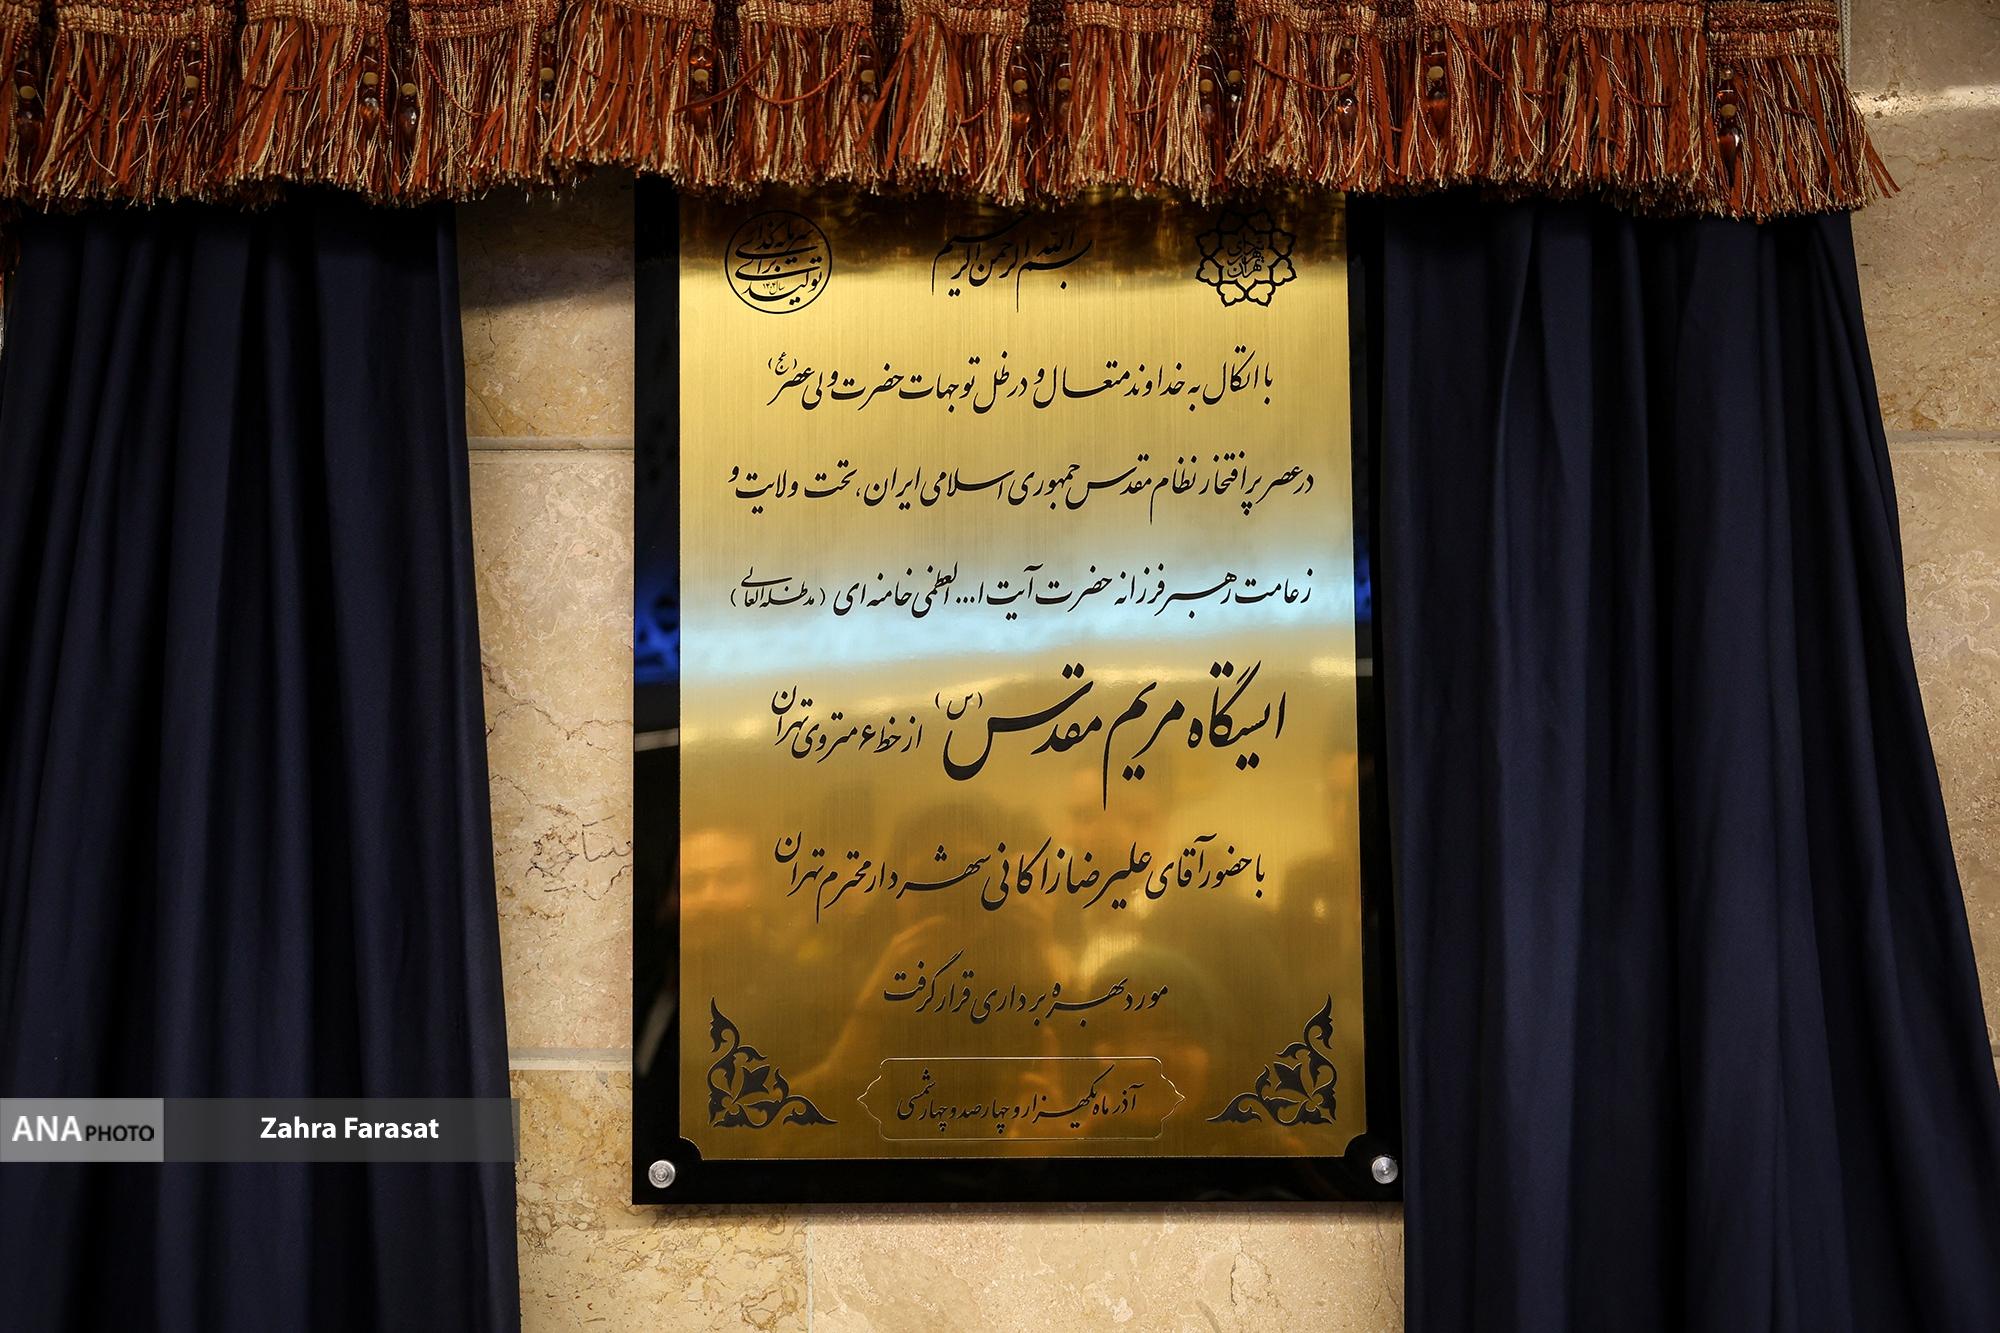 سرمایه‌گذاری
برای
تولید
سال ۱۴۰۴
بسم الله الرحمن الرحیم
شهرداری
تهران
با اتکال به خداوند متعال و در ظل توجهات حضرت ولی عصر (عج)
در عصر پر افتخار نظام مقدس جمهوری اسلامی ایران، تحت ولایت و
زعامت رهبر فرزانه حضرت آیت ا... العظمی خامنه ای (مدظله العالی)
ایستگاه مریم مقدس (س) از خط ۶ متروی تهران
با حضور آقای علیرضا زاکانی شهردار محترم تهران
مورد بهره برداری قرار گرفت
آذر ماه یکهزار و چهارصد و چهار شمسی
ANA PHOTO
Zahra Farasat